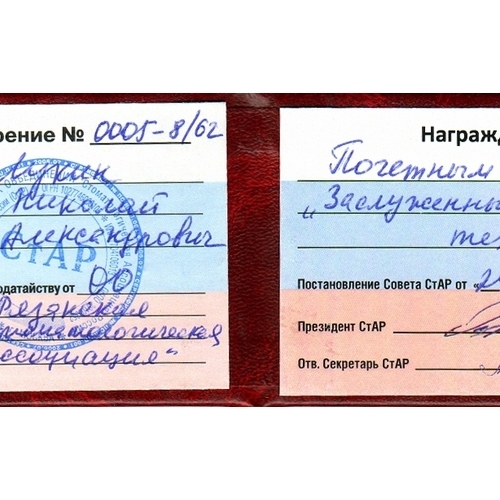 рение № 0005-8/62
Николай
Александрович
СтАР
одатайству от ОО
Рязанская
ссоциация"
Награжд
Почетным
„Заслуженны
Постановление Совета СтАР от "2
Президент СтАР
Отв. Секретарь СтАР